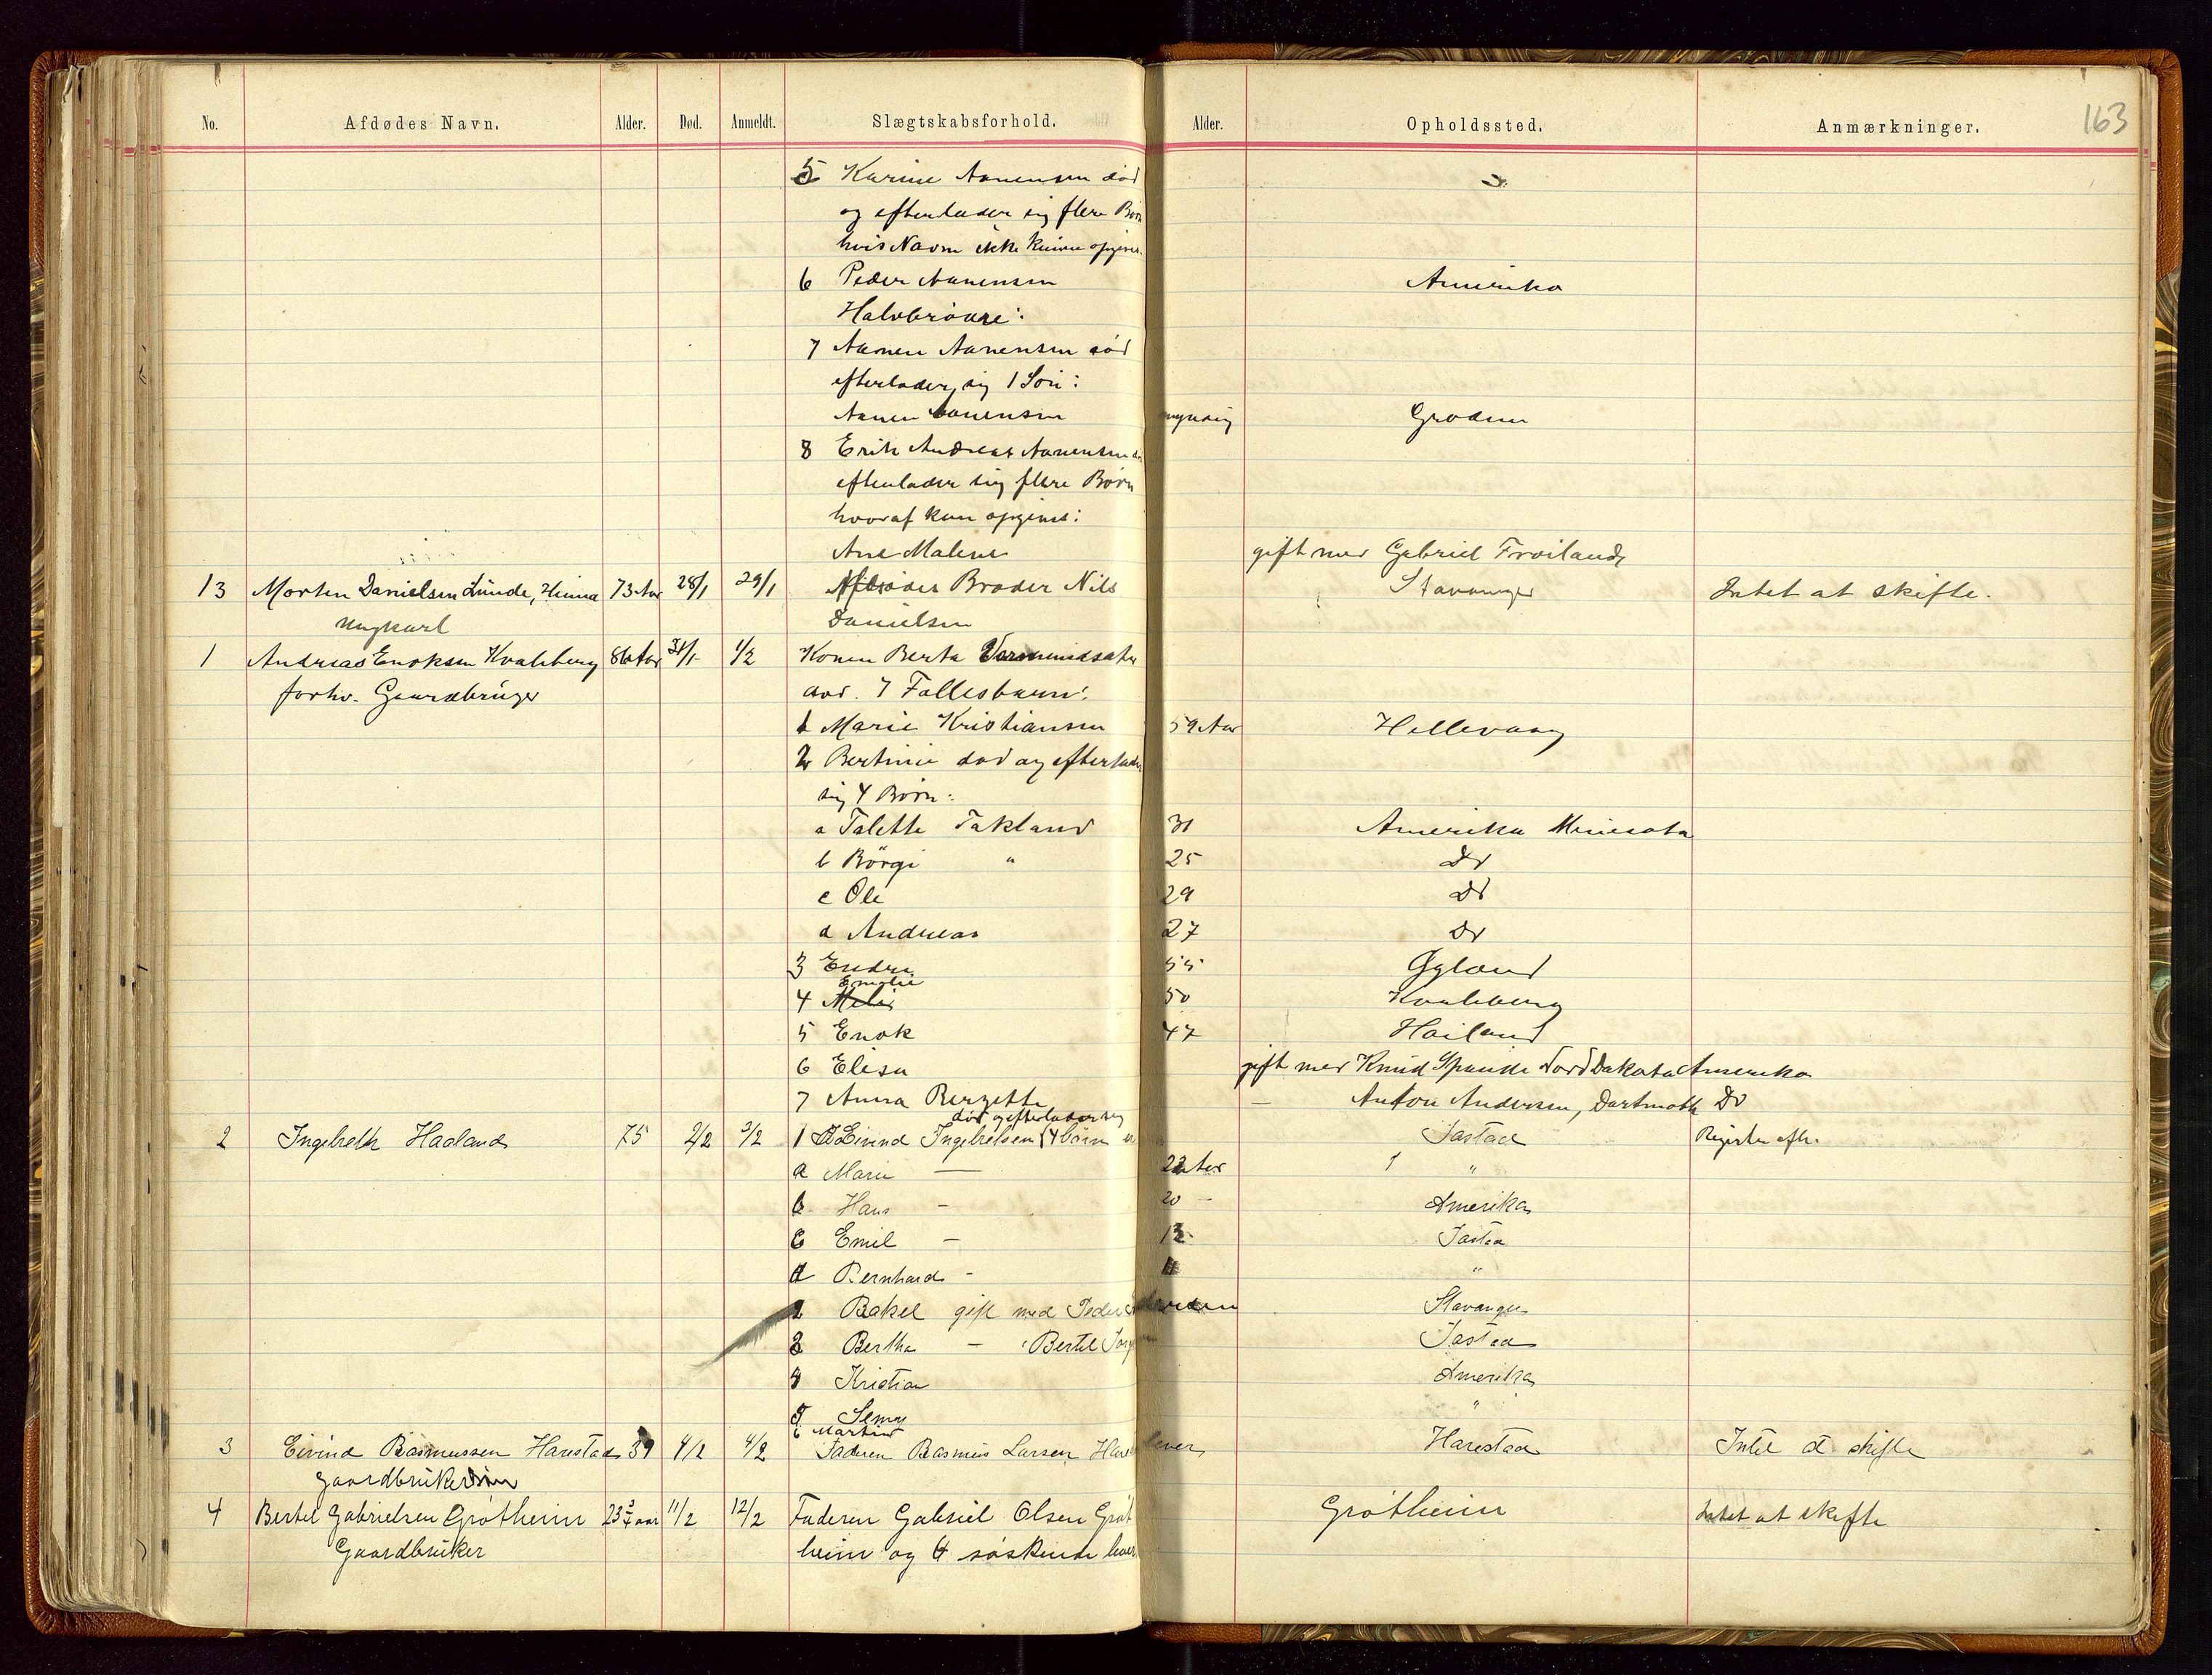 163
No. Afdødes Navn. Alder. Død. Anmeldt. Slægtskabsforhold. Alder. Opholdssted. Anmærkninger.
5 Karine Aanensen død
og efterlader sig flere Børn
hvis Navn ikke kunne opgives.
6 Peder Aanensen Amerika
Halvbrødre:
7 Aanen Aanensen død
efterlader sig 1 Søn:
Aanen Aanensen myndig Grødem
8 Erik Andreas Aanensen
efterlader sig flere Børn
hvoraf kun opgives:
Ane Malene gift med Gabriel Frøiland,
13 Morten Danielsen Lunde, Hinna 73 Aar 28/1 29/1 Broder Nils Stavanger Intet at skifte.
Ungkarl Danielsen
1 Andreas Enoksen Kvaleberg 86 Aar 31/1 1/2 Konen Berta
forhv. Gaardbruger 7 Fællesbørn:
1 Marie Kristiansen 59 Aar Hellevaag
2 Bertine død og efterlader
sig 4 Børn:
a Talette Takland 31 Amerika Minesota
b Börgi " 25 Do
c Ole 29 Do
d Andreas 27 Do
3 Endre 55 Gyland
Emelie
4 50 Kvaleberg
5 Enok 47 Høiland
6 Elisa gift med Knud Nord Dakota Amerika
7 Anna Bergette — Anton Andersen, Dartmoth Do
død og efterlader sig
2 Ingebreth Haaland 75 2/2 3/2 1 Eivind Ingebretsen (4 børn Tastad Register afh.
a Marie — 22 Aar "
b Hans — 20 — Amerika
c Emil — 13 Tasta
d Bernhard - "
2 Rakel gift med Peder Stavanger
3 Bertha — Bertel Tastad
4 Kristian Amerika
5 "
6 Martin
3 Eivind Rasmussen Harestad 39 4/2 4/2 Faderen Rasmus Larsen lever Harestad Intet at skifte
gaardbrukersøn
4 Bertel Gabrielsen Grøtheim 23 3/4 aar 11/2 12/2 Faderen Gabriel Olsen Grøt Grøtheim Intet at skifte
Gaardbruker heim og 4 søskende lever